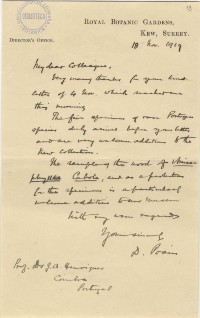 ROYAL BOTANIC GARDENS,
KEW, SURREY.
DIRECTOR'S OFFICE.
19 Nov. 1919
My dear Colleague,
Very many thanks for your kind
letter of 4 Nov which reached me
this morning
The fine specimens of rare Portuguese
species duly arrived before your letter
and are very welcome additions to the
Kew Collection.
The sample of the wood of
and as a
for the specimens is a particularly
welcome addition to our Museum
With my warm regards
Yours sincerely
D. Prain
Prof. Dr J. A. Henriques
Coimbra
Portugal